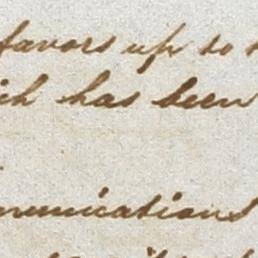 favors up to
ich has been
munications